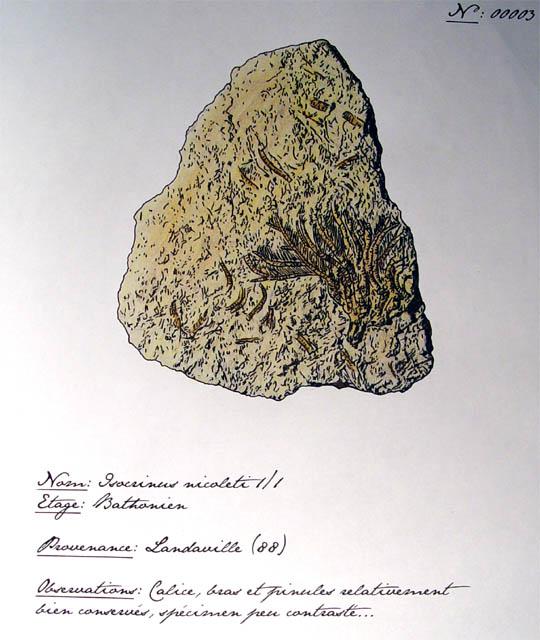 N°: 00003
Nom: Isocrinus nicoleti 1/1
Etage: Bathonien
Provenance: Landaville (88)
Observations: Calice, bras et pinules relativement
bien conservés, spécimen peu contraste...